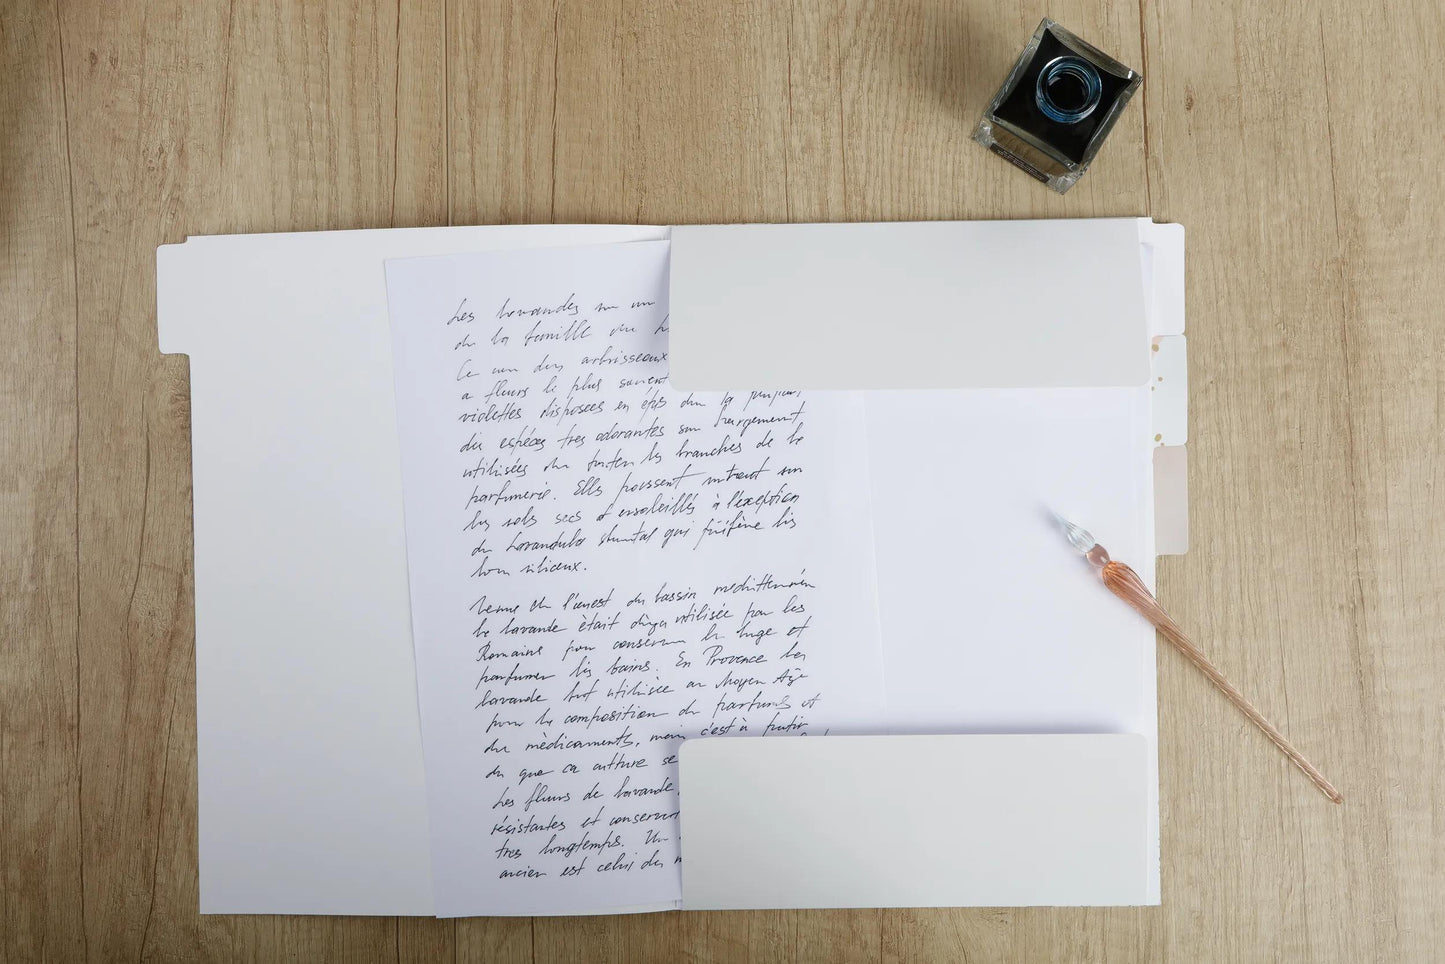 Les lavandes sur un
de la famille du L
Ce
arbrisseaux
a fleurs le plus souvent
violettes disposées en épis dn la plupart
du espéces tres odorantes sur largement
utilisées dn toutes les branches de la
parfumerie. Elles poussent surtout sur
les sols secs et ensoleillés à l'exception
du Lavandula qui préfère les
siliceux.
l'ouest du bassin mediterranéen
la lavande ètait utilisée par les
Romains pour conserver le linge et
parfumer les bains. En Provence les
lavande utilisée au Moyen Age
pour la composition de parfums et
du mèdicaments, mais c'est à partir
du que ca culture se
Les fleurs de lavande,
résistantes et conservent
tres longtemps. Un
ancien est celui du